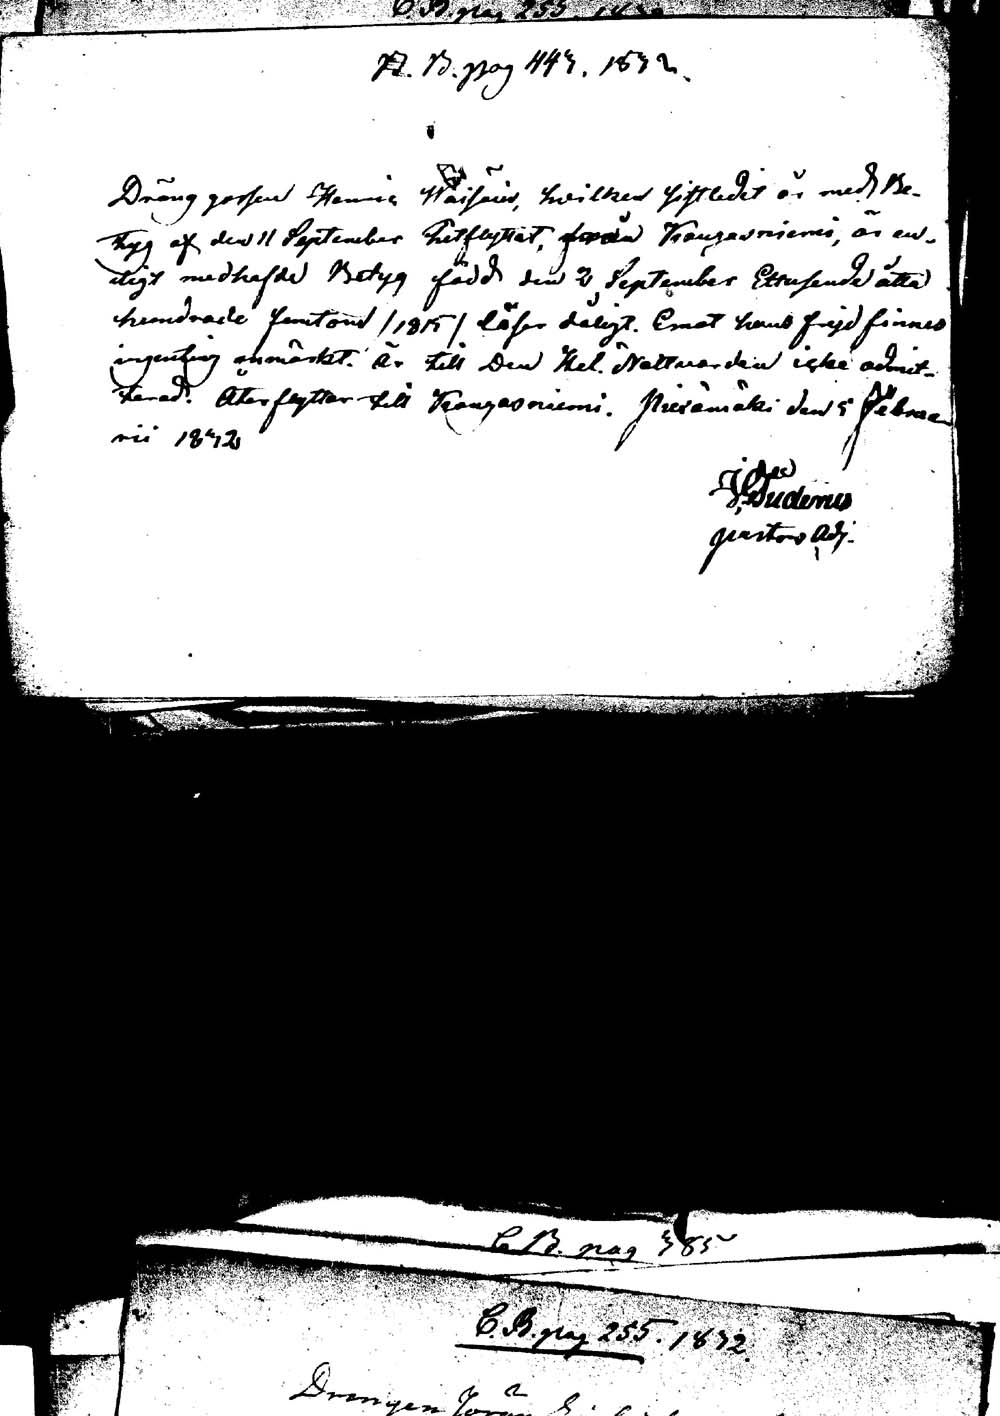 C. B. pag 255. 1832
A. B. pag 443. 1832.
Dräng gossen Henric Wäisäin, hvilken sistledit år med Be-
tyg af den 11 September hitflyttat, från Kangasniemi, är en-
ligt medhafde Betyg född den 2 September Ettusende åtta
hundrade femton /1815/ läser dåligt. Emot hans frejd finnes
ingenting anmärkt. Är till Den Hel. Nattvarden icke admit-
terad. Återflyttar till Kangasniemi. Piexämäki den 5 Februa-
rii 1832
pastors Adj.
C. B. pag 385
C. B. pag 255. 1832.
Drengen Jöran